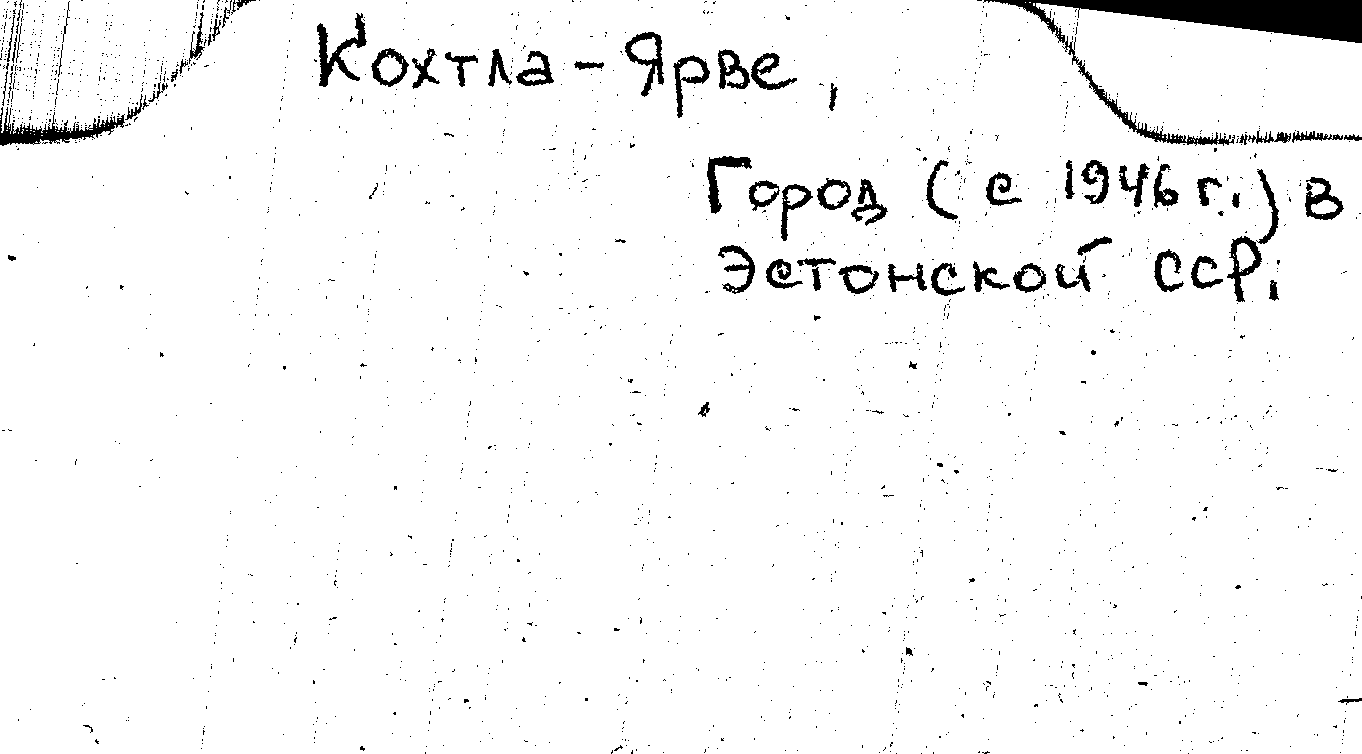 Кохтла-Ярве,
Город (с 1946 г.) в
Эстонской ССР.